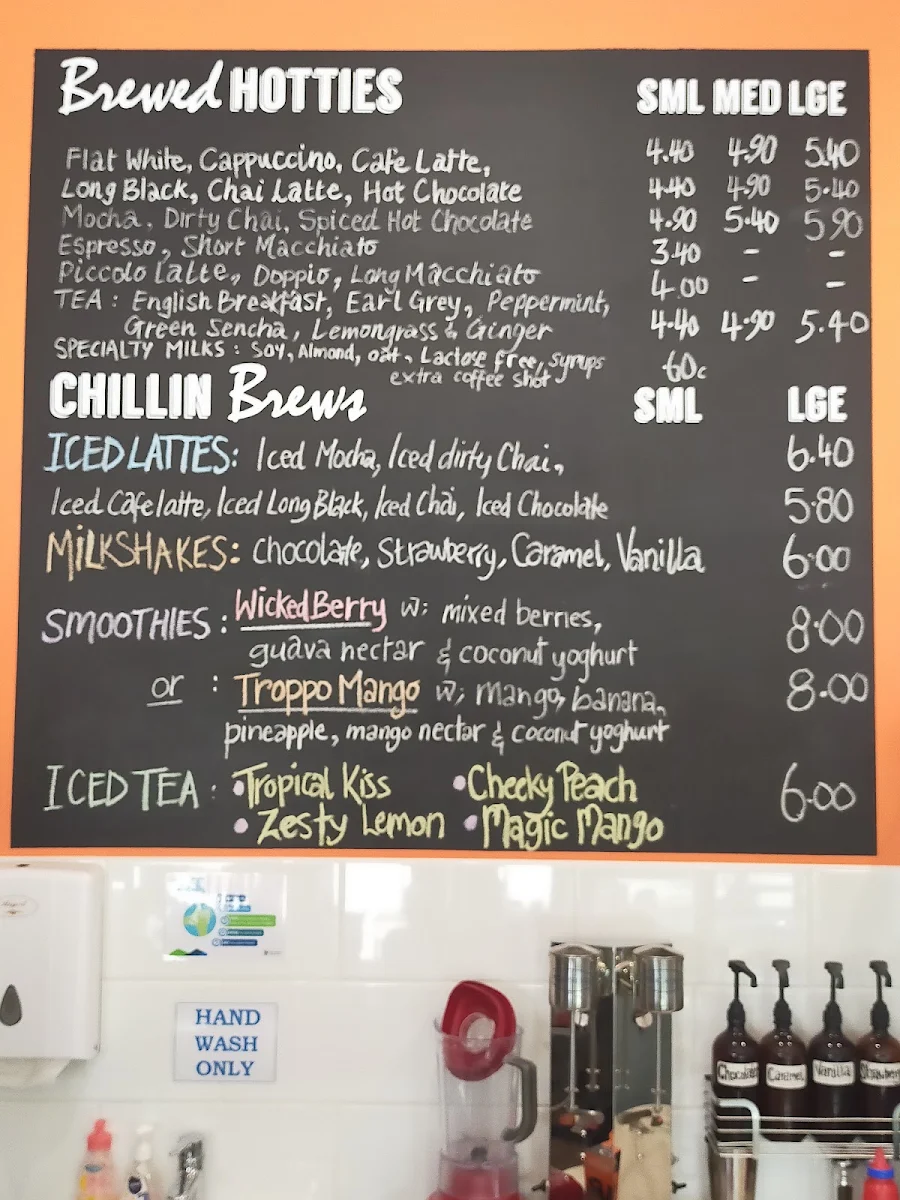 Brewed HOTTIES SML MED LGE
Flat White, Cappuccino, Cafe Latte, 4.40 4.90 5.40
Long Black, Chai Latte, Hot Chocolate 4.40 4.90 5.40
Mocha, Dirty Chai, Spiced Hot Chocolate 4.90 5.40 5.90
Espresso, Short Macchiato 3.40 - -
Piccolo Latte, Doppio, Long Macchiato 4.00 - -
TEA: English Breakfast, Earl Grey, Peppermint,
Green Sencha, Lemongrass & Ginger 4.40 4.90 5.40
SPECIALTY MILKS: Soy, Almond, oat, Lactose free, syrups 60c
extra coffee shot
CHILLIN Brews SML LGE
ICED LATTES: Iced Mocha, Iced dirty Chai, 6.40
Iced Cafe latte, Iced Long Black, Iced Chai, Iced Chocolate 5.80
MILKSHAKES: Chocolate, Strawberry, Caramel, Vanilla 6.00
SMOOTHIES: Wicked Berry w; mixed berries, 8.00
guava nectar & coconut yoghurt
or : Troppo Mango w; Mango, banana, 8.00
pineapple, mango nectar & coconut yoghurt
ICED TEA: • Tropical Kiss • Cheeky Peach 6.00
• Zesty Lemon • Magic Mango
HAND
WASH
ONLY
Chocolate Caramel Vanilla Strawberry